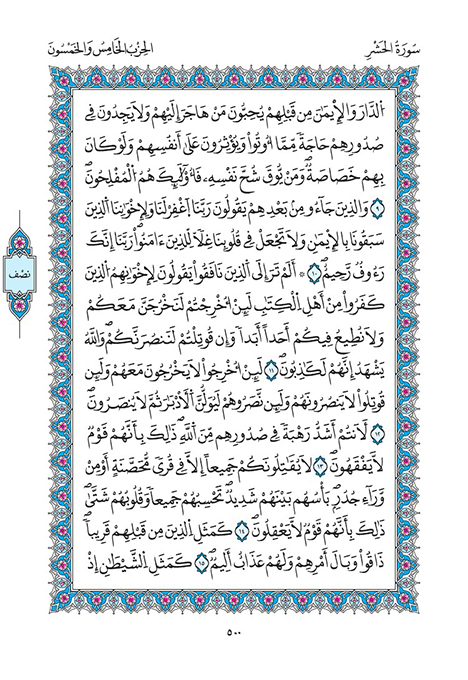 سُورَةُ الحَشْرِ
الحِزْبُ الخَامِسُ وَالخَمْسُونَ
اَ۬لدَّارَ وَالْإِيمَٰنَ مِن قَبْلِهِمْ يُحِبُّونَ مَنْ هَاجَرَ إِلَيْهِمْ وَلَا يَجِدُونَ فِے
صُدُورِهِمْ حَاجَةٗ مِّمَّا أُوتُواْ وَيُؤْثِرُونَ عَلَىٰ أَنفُسِهِمْ وَلَوْ كَانَ
بِهِمْ خَصَاصَةٞۖ وَمَنْ يُّوقَ شُحَّ نَفْسِهِۦ فَأُوْلَٰٓئِكَ هُمُ الْمُفْلِحُونَۖ
٩ وَالذِينَ جَآءُو مِنۢ بَعْدِهِمْ يَقُولُونَ رَبَّنَا اَ۪غْفِرْ لَنَا وَلِإِخْوَٰنِنَا الذِينَ
سَبَقُونَا بِالْإِيمَٰنِ وَلَا تَجْعَلْ فِے قُلُوبِنَا غِلّاٗ لِّلذِينَ ءَامَنُواْۖ رَبَّنَا إِنَّكَ
رَءُوفٞ رَّحِيمٌۖ ١٠ ۞ أَلَمْ تَرَ إِلَى الذِينَ نَافَقُواْ يَقُولُونَ لِإِخْوَٰنِهِمُ الذِينَ
كَفَرُواْ مِنْ أَهْلِ الْكِتَٰبِ لَئِنْ أُخْرِجْتُمْ لَنَخْرُجَنَّ مَعَكُمْ
وَلَا نُطِيعُ فِيكُمْ أَحَداً أَبَداٗ وَإِن قُوتِلْتُمْ لَنَنصُرَنَّكُمْۖ وَاللَّهُ
يَشْهَدُ إِنَّهُمْ لَكَٰذِبُونَۖ ١١ لَئِنْ أُخْرِجُواْ لَا يَخْرُجُونَ مَعَهُمْ وَلَئِن
قُوتِلُواْ لَا يَنصُرُونَهُمْ وَلَئِن نَّصَرُوهُمْ لَيُوَلُّنَّ الْأَدْبَٰرَ ثُمَّ لَا يُنصَرُونَۖ
١٢ لَأَنتُمْ أَشَدُّ رَهْبَةٗ فِے صُدُورِهِم مِّنَ اَ۬للَّهِۖ ذَٰلِكَ بِأَنَّهُمْ قَوْمٞ
لَّا يَفْقَهُونَۖ ١٣ لَا يُقَٰتِلُونَكُمْ جَمِيعاً إِلَّا فِے قُرىٗ مُّحَصَّنَةٍ أَوْ مِنْ
وَّرَآءِ جُدُرِۢۖ بَأْسُهُم بَيْنَهُمْ شَدِيدٞۖ تَحْسِبُهُمْ جَمِيعاٗ وَقُلُوبُهُمْ شَتَّىٰۖ
ذَٰلِكَ بِأَنَّهُمْ قَوْمٞ لَّا يَعْقِلُونَۖ ١٤ كَمَثَلِ الذِينَ مِن قَبْلِهِمْ قَرِيباٗۖ
ذَاقُواْ وَبَالَ أَمْرِهِمْ وَلَهُمْ عَذَابٌ أَلِيمٞۖ ١٥ كَمَثَلِ الشَّيْطَٰنِ إِذْ
نصف
٥٠٠